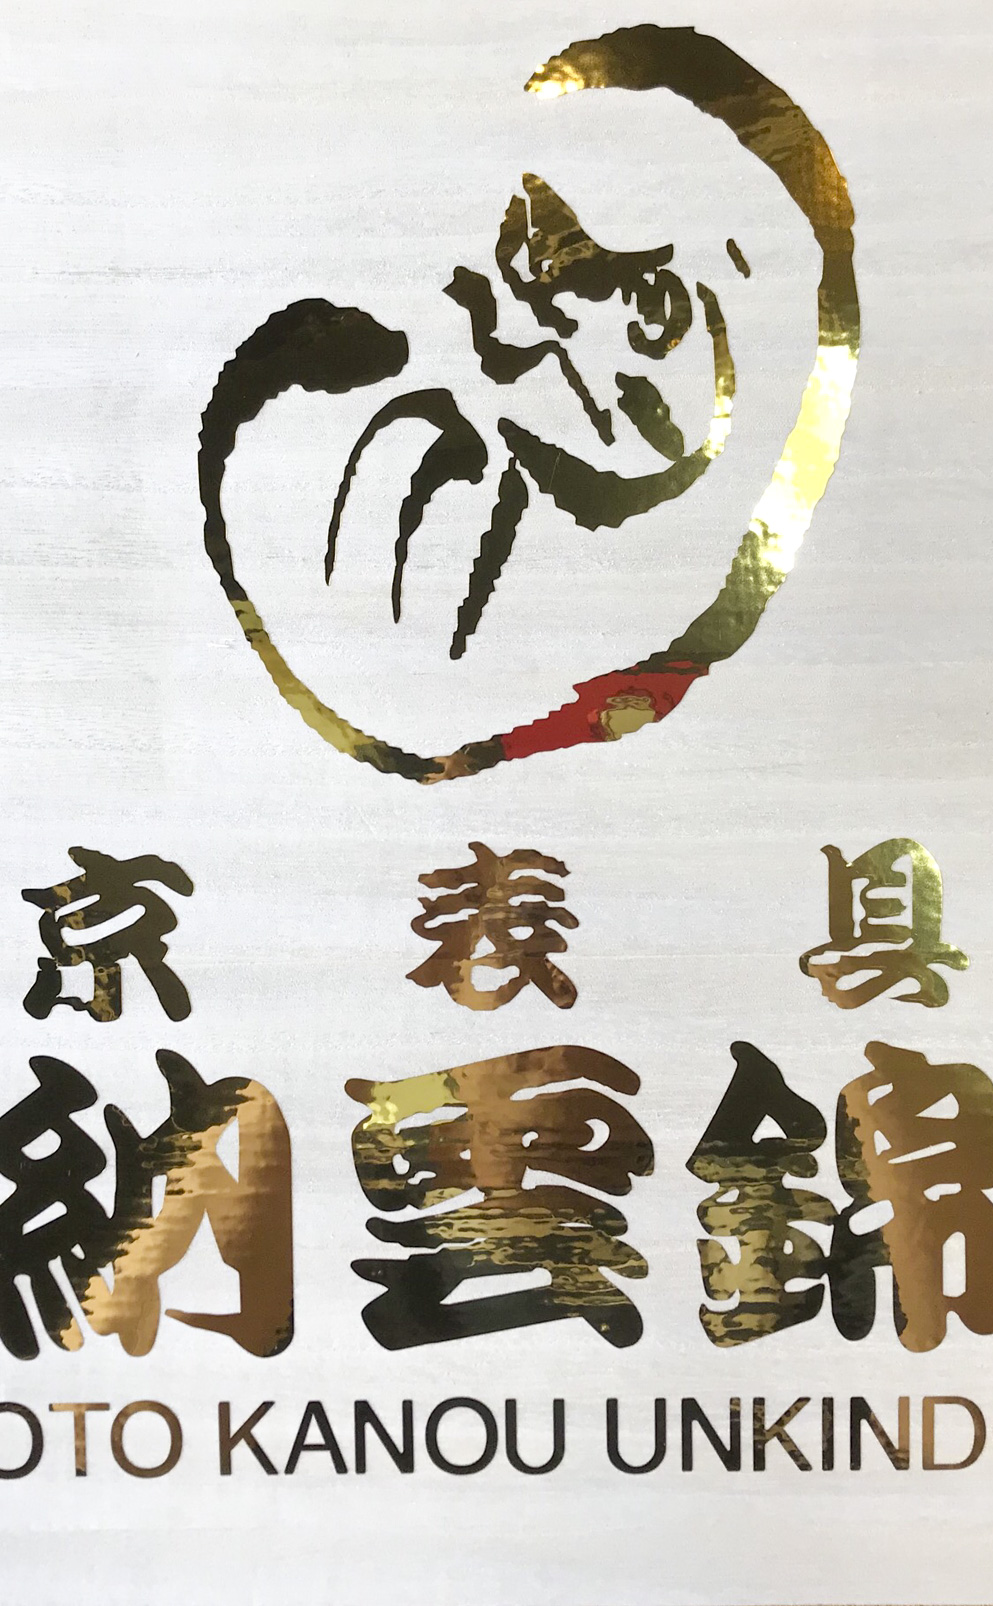 京表具
納雲錦
OTO KANOU UNKIND